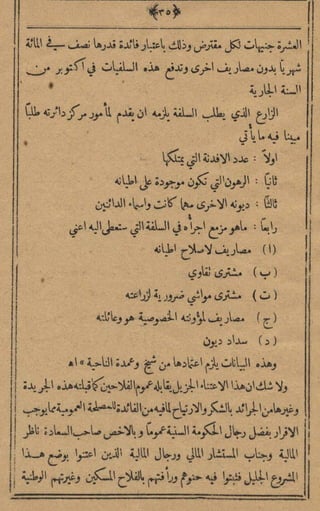 ﴿٣٥﴾
العشرة جنيهات لكل مقترض وذلك باعتبار فائدة قدرها نصف في المائة
شهريا بدون مصاريف اخرى وتدفع هذه السلفيات في اكتوبر من
السنة الجارية
الزارع الذي يطلب السلفة يلزمه ان يقدم لمأمور مركز دائرته طلبًا
مبينا فيه ما يأتي
اولاً : عدد الافدنة التي يمتلكها
ثانيًا : الرهون التي تكون موجودة على اطيانه
ثالثًا : ديونه الاخرى مهما كانت واسماء الدائنين
رابعًا : ما هو مزمع اجرأه في السلفة التي ستعطى اليه اعني
(ا) مصاريف لاصلاح اطيانه
(ب) مشترى تقاوي
(ت) مشترى مواشي ضرورية لزراعته
(ج) مصاريف لمؤونته الخصوصية هو وعائلته
(د) سداد ديون
وهذه البيانات يلزم اعتمادها من شيخ وعمدة الناحية » اه
ولا شك ان هذا الاعتناء الجزيل يقابله عموم الفلاحين كما قبلته هذه الجريدة
وغيرها من الجرائد بالشكر والارتياح لما فيه من الفائدة للمصلحة العمومية مما يوجب
الاقرار بفضل رجال الحكومة السنية عموما وبالاخص صاحب السعادة ناظر
المالية وجناب المستشار المالي ورجال المالية الذين اعتنوا بوضع هذا
المشروع الجليل فثبتوا فيه حنوهم ورأفتهم بالفلاح المسكين وغيرتهم الوطنية